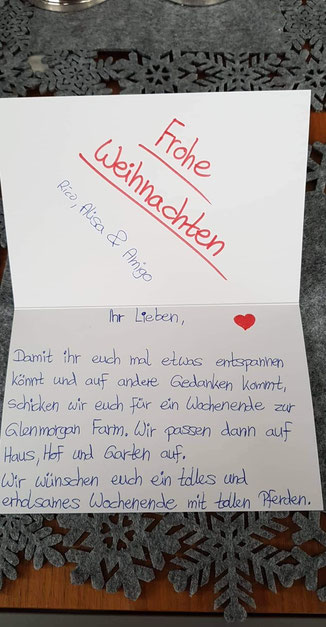 Frohe
Weihnachten
Rico, Alisa & Amigo
Ihr Lieben,
Damit ihr euch mal etwas entspannen
könnt und auf andere Gedanken kommt,
schicken wir euch für ein Wochenende zur
Glenmorgan Farm. Wir passen dann auf
Haus, Hof und Garten auf.
Wir wünschen euch ein tolles und
erholsames Wochenende mit tollen Pferden.